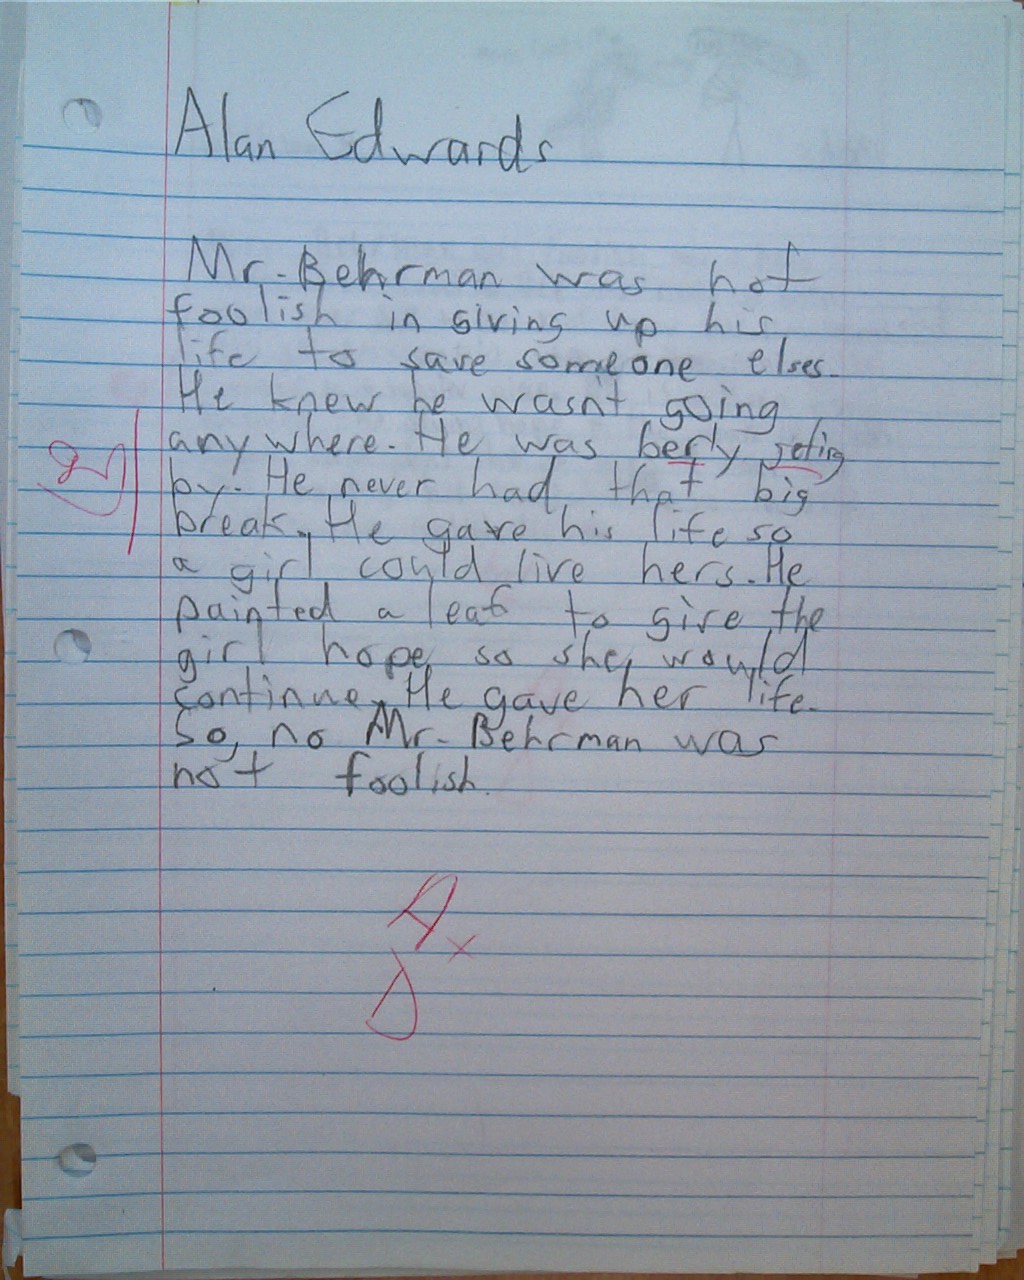 Alan Edwards
Mr. Behrman was not
foolish in giving up his
life to save someone elses.
He knew he wasn't going
anywhere. He was berly geting
by. He never had that big
break. He gave his life so
a girl could live hers. He
painted a leaf to give the
girl hope so she would
continue. He gave her life.
So, no Mr. Behrman was
not foolish.
A